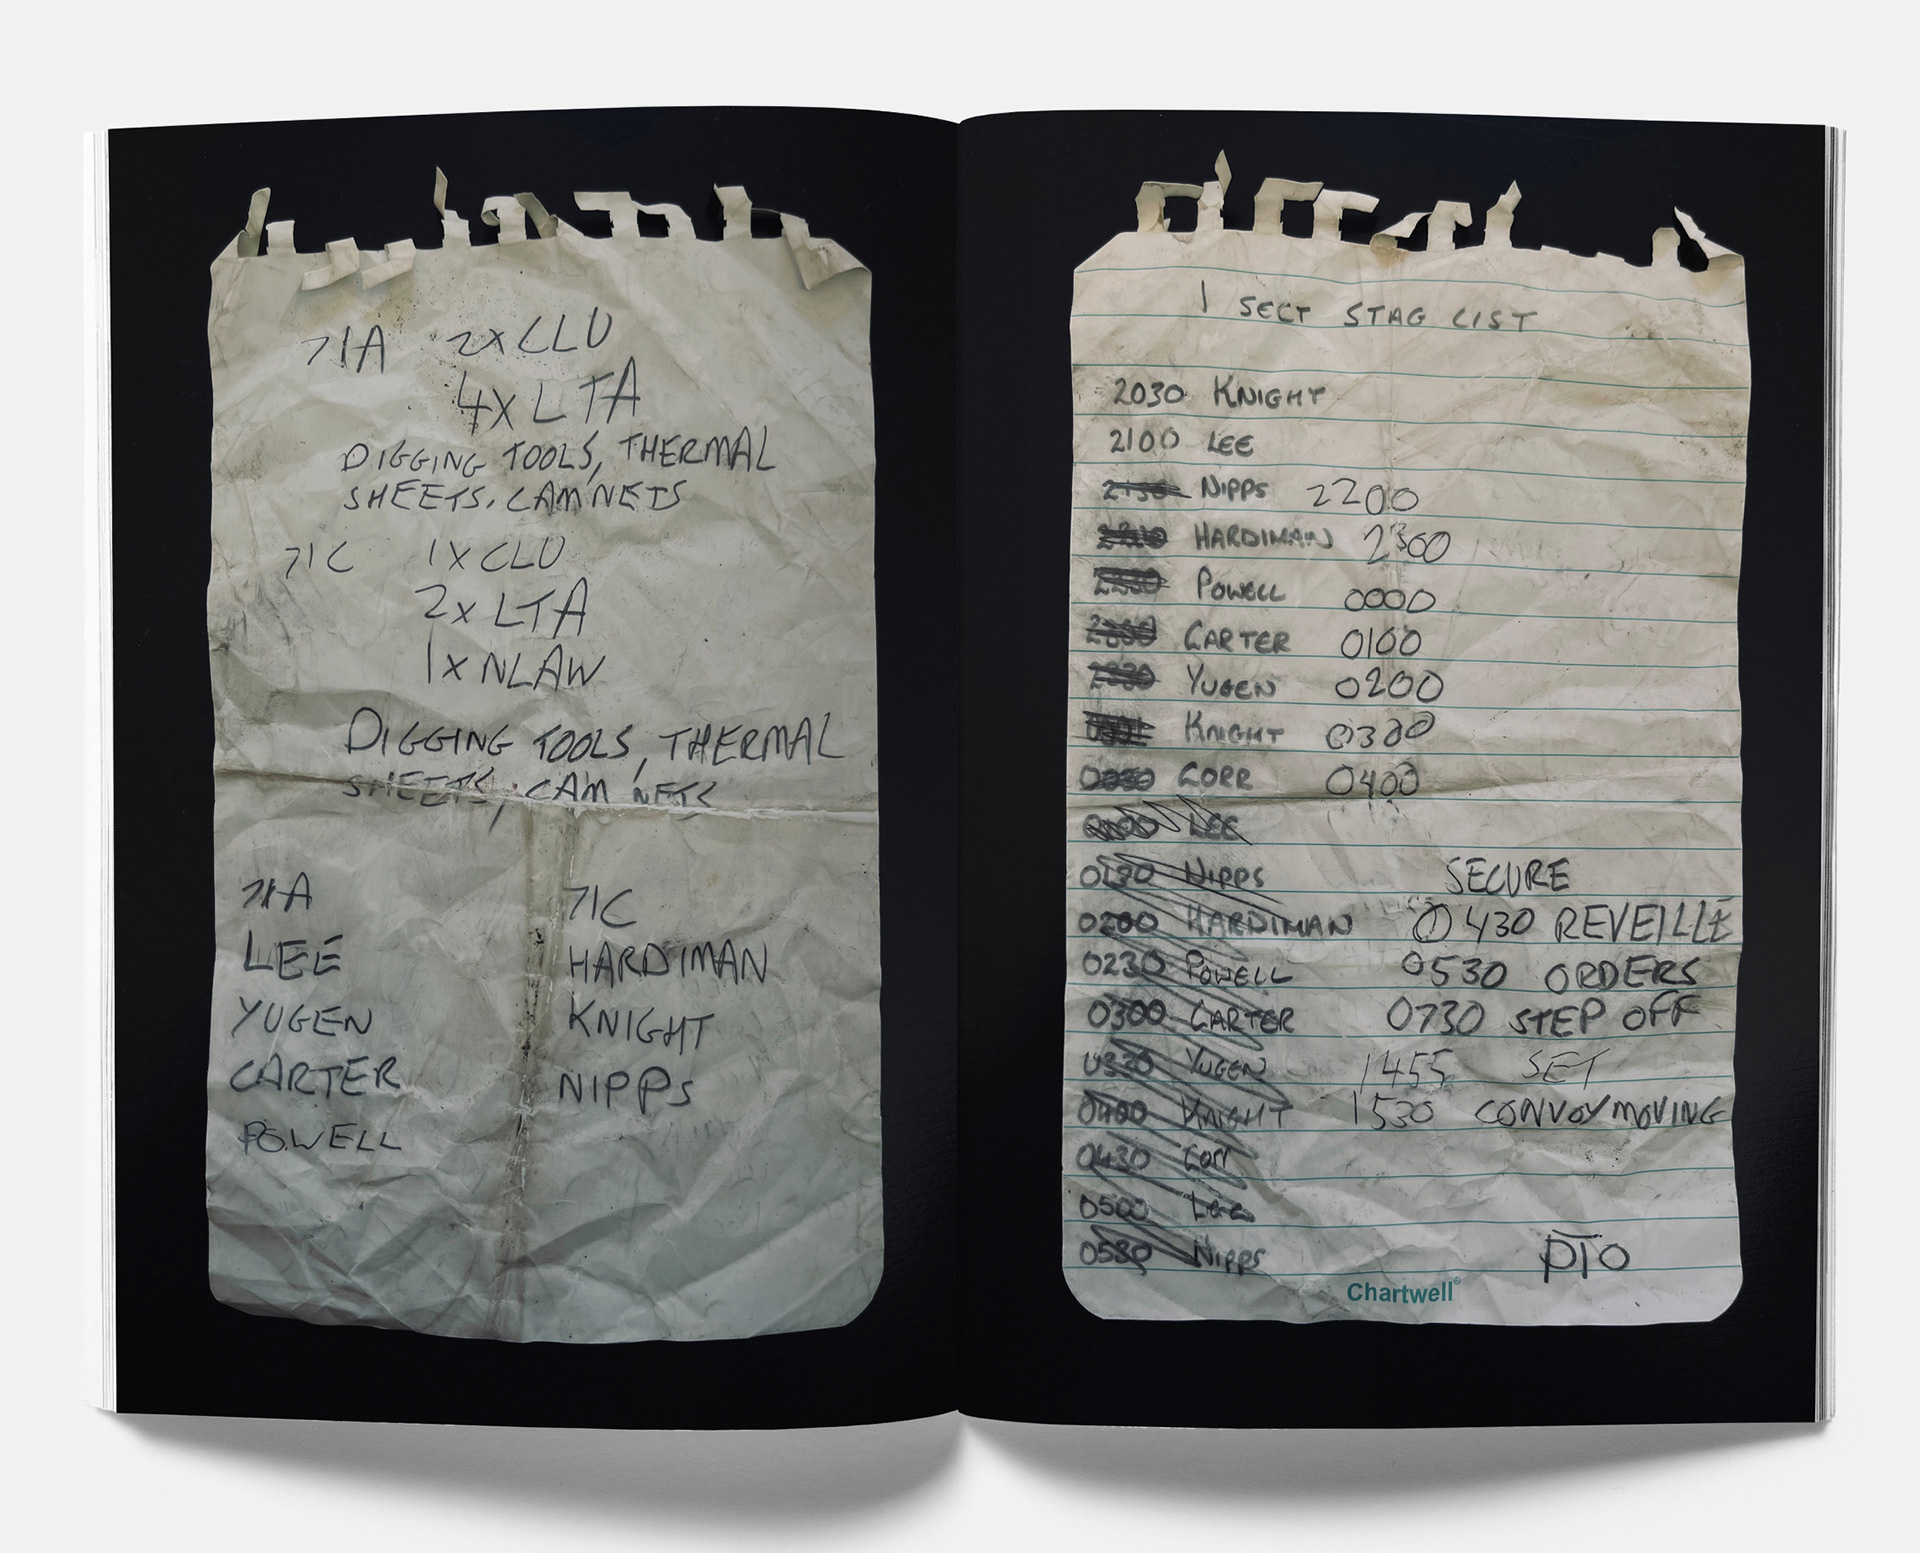 71A 2x CLU
4x LTA
DIGGING TOOLS, THERMAL
SHEETS, CAM NETS
71C 1x CLU
2x LTA
1x NLAW
DIGGING TOOLS, THERMAL
SHEETS, CAM NETS
71A
LEE
YUGEN
CARTER
POWELL
71C
HARDIMAN
KNIGHT
NIPPS
1 SECT STAG LIST
2030 KNIGHT
2100 LEE
2130 NIPPS 2200
HARDIMAN 2300
POWELL 0000
CARTER 0100
YUGEN 0200
KNIGHT 0300
CORR 0400
LEE
0130 NIPPS SECURE
0200 HARDIMAN 0430 REVEILLE
0230 POWELL 0530 ORDERS
0300 CARTER 0730 STEP OFF
0330 YUGEN 1455 SET
0400 KNIGHT 1530 CONVOY MOVING
0430 Corr
0500 Lee
0530 NIPPS PTO
Chartwell®